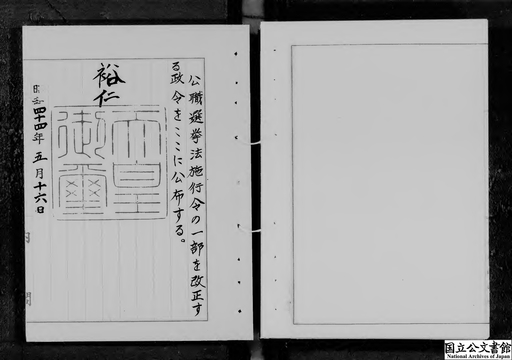 公職選挙法施行令の一部を改正す
る政令をここに公布する。
裕仁
天皇
御璽
昭和四十四年五月十六日
国立公文書館
National Archives of Japan